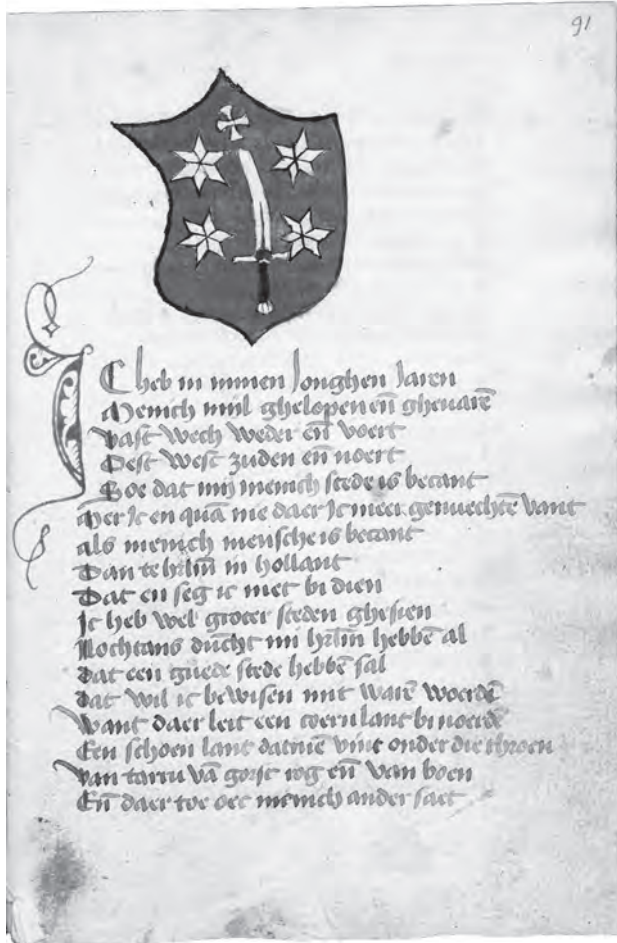 91
Ic heb in minen Jonghen Jaren
Menich mijl ghelopen eñ gheuarē
Vast wech weder eñ voert
Oest west zuden eñ noert
Soe dat mij menich stede is becant
Mer Ic en quā nie daer Ic meer genuechtē vant
als menich mensche is becant
Dan te hrlm̄ in hollant
Dat en seg ic niet bi dien
Ic heb wel groter steden ghesien
Nochtans dūcht mi hrlm̄ hebbē al
dat een guede stede hebbē sal
dat wil ic bewisen mit warē woerdē
Want daer leit een coern lant bi noerdē
Een schoen lant datmē vint onder die throen
Van tarru vā gorst rog eñ van boen
Eñ daer toe oec menich ander saet